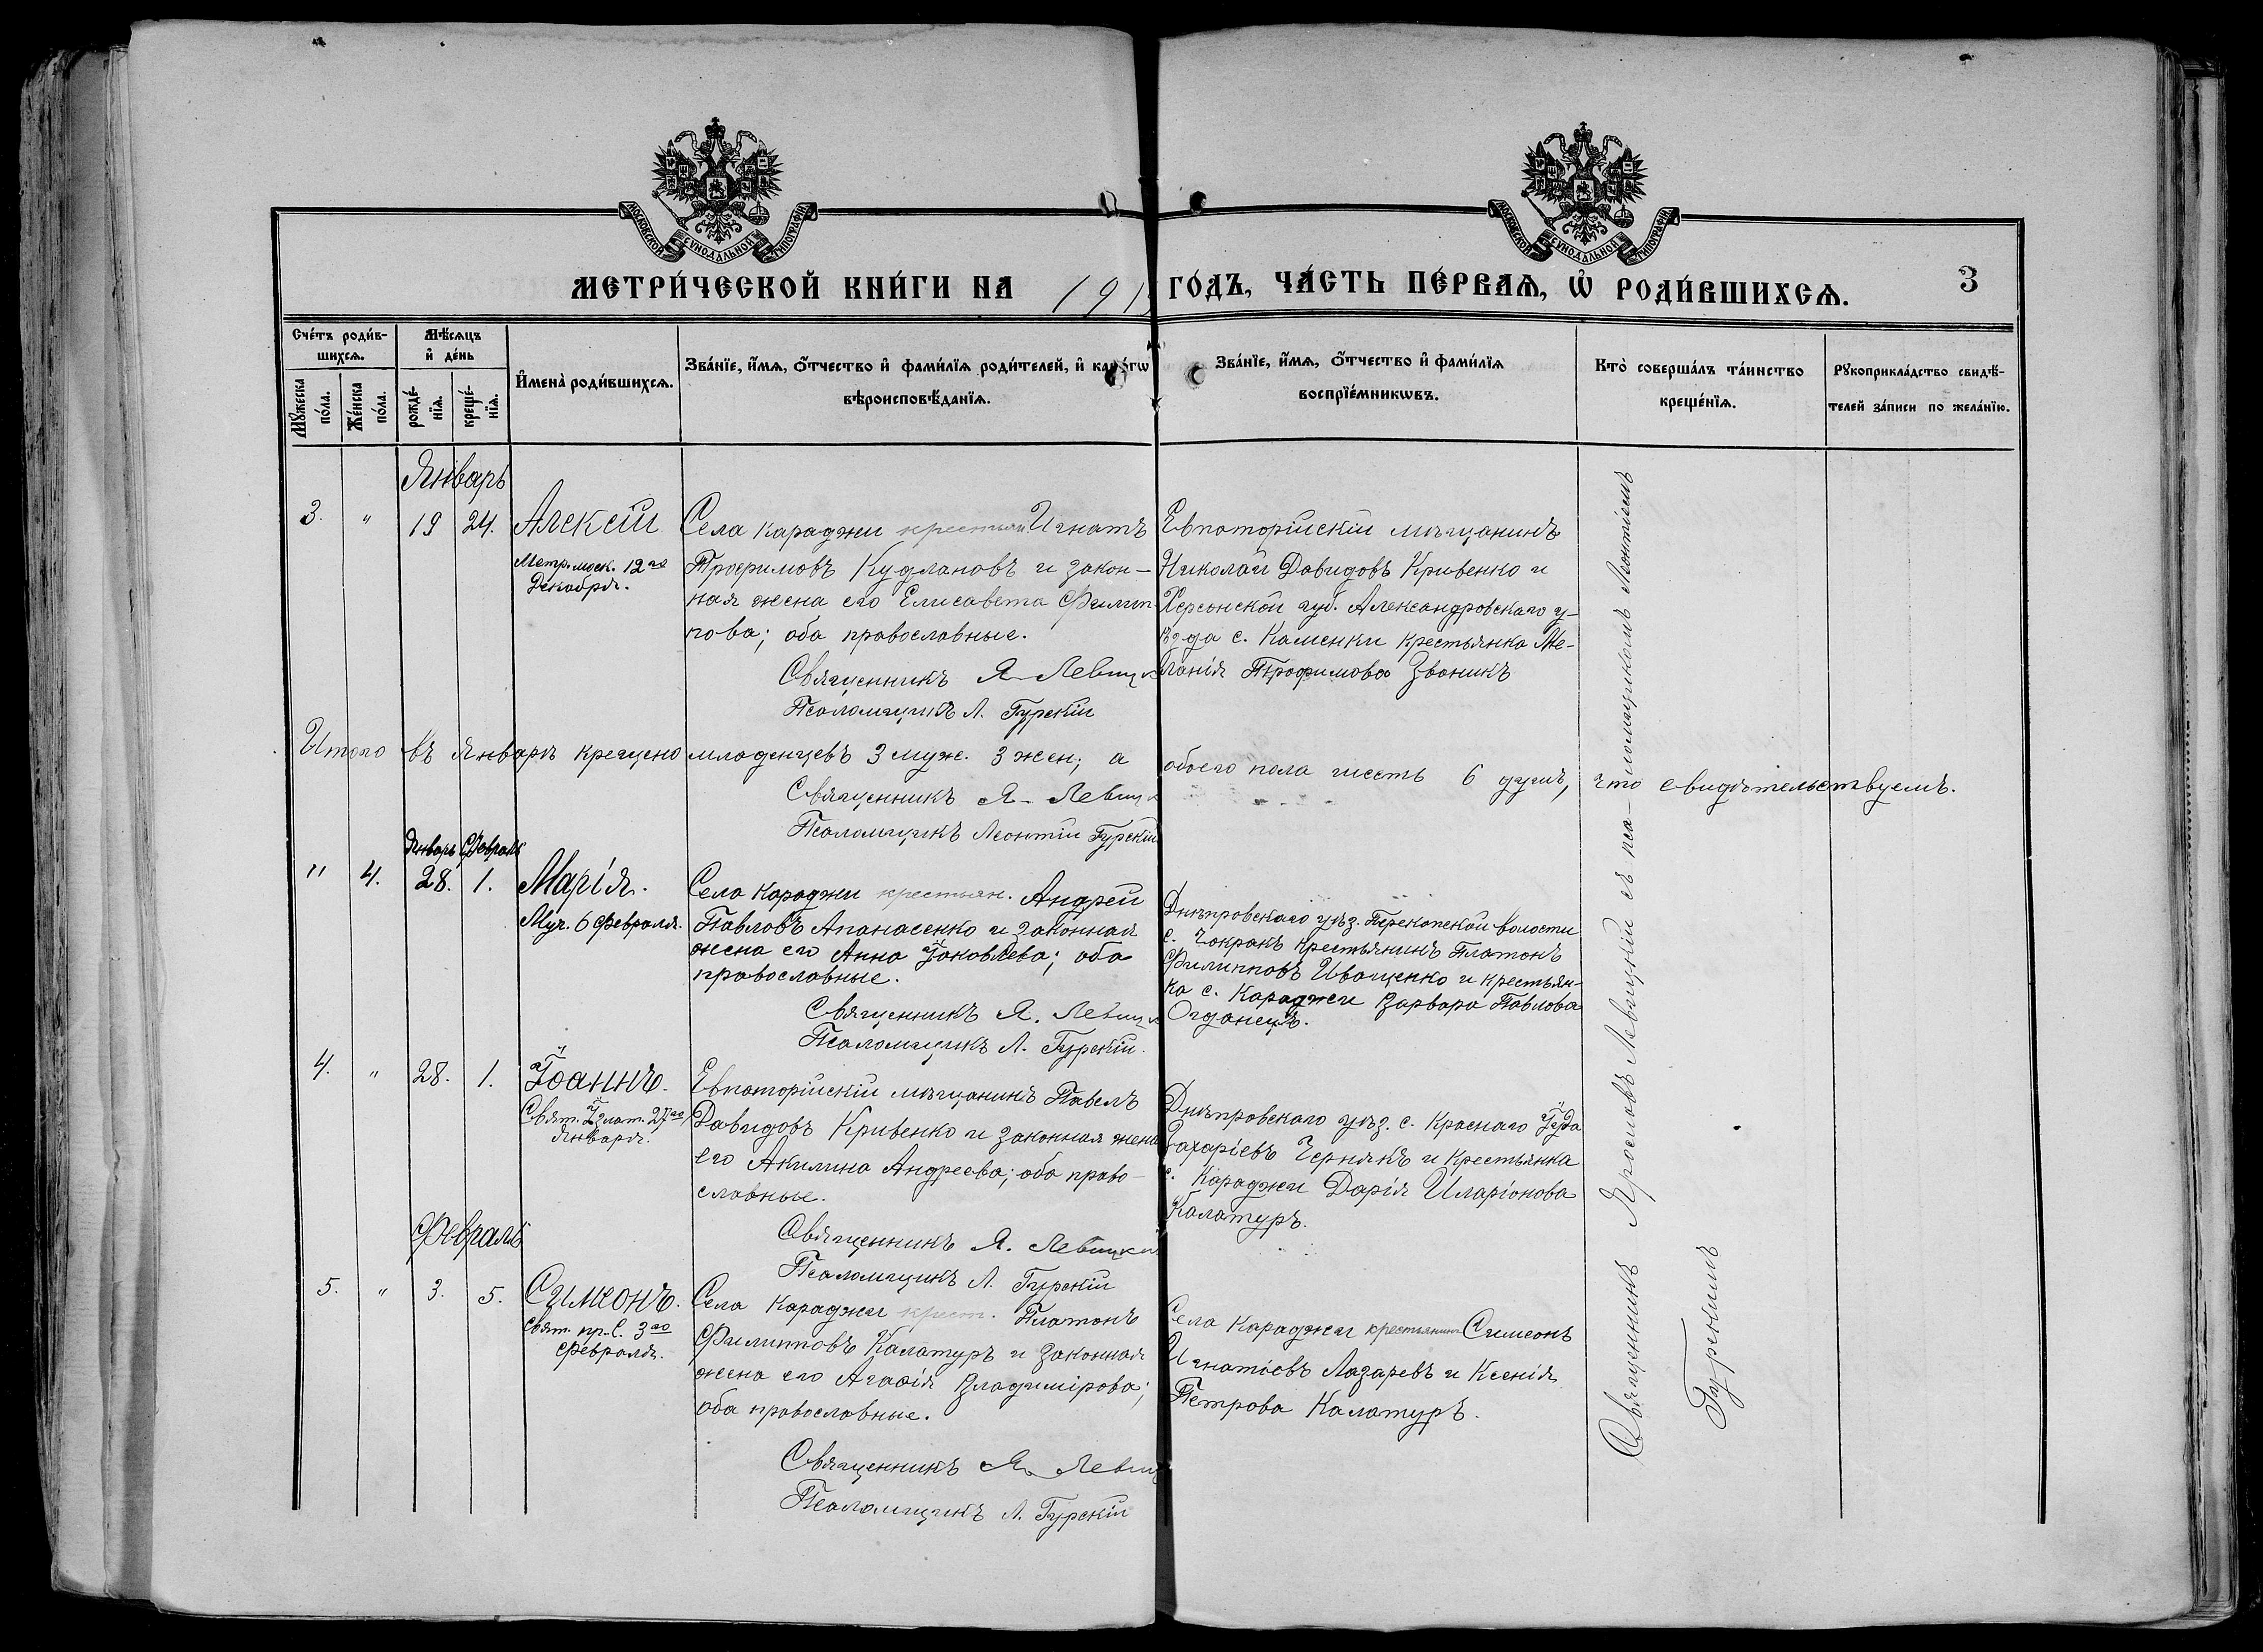 МОСКОВСКОЙ СѴНОДАЛЬНОЙ ТИПОГРАФІИ
МОСКОВСКОЙ СѴНОДАЛЬНОЙ ТИПОГРАФІИ
МЕТРИ́ЧЕСКОЙ КНИ́ГИ НА 191 ГО́ДЪ, ЧА́СТЬ ПЕ́РВАѦ, Ѡ҆ РОДИ́ВШИХСѦ.
3
Сче́тъ роди́в-
шихсѧ.
Мꙋ́жеска по́ла.
Же́нска по́ла.
Мѣ́сѧцъ
и҆ де́нь
рожде́-нїѧ.
креще́-нїѧ.
И҆мена̀ роди́вшихсѧ.
Зва́нїе, и҆́мѧ, ѻ҆́тчество и҆ фами́лїѧ роди́телей, и҆ како́гѡ
вѣроисповѣ́данїѧ.
Зва́нїе, и҆́мѧ, ѻ҆́тчество и҆ фами́лїѧ
воспрїе́мникѡвъ.
Кто̀ соверша́лъ та́инство
креще́нїѧ.
Рꙋкоприкла́дство свидѣ́-
телей за́писи по жела́нїю.
Январь
3. " 19 24. Алексій
Митр. моск. 12го
Декабря.
Села Караджи крестьян. Игнатъ
Трофимовъ Кудлановъ и закон-
ная жена его Елисавета Филип-
пова; оба православные.
Священникъ Я. Левиц
Псаломщикъ Л. Гурскій
Евпаторійскій мѣщанинъ
Николай Давидовъ Кривенко и
Херсонской губ. Александровскаго у-
ѣзда с. Каменки крестьянка Ме-
ланія Трофимова Звоникъ
Итого въ Январѣ крещено младенцевъ 3 муж. 3 жен; а обоего пола шесть 6 душъ, что свидѣтельствуемъ.
Священникъ Я. Левиц
Псаломщикъ Леонтій Гурскій
Январь Февраль
" 4. 28. 1. Марія.
Муч. 6 Февраля.
Села Караджи крестьян. Андрей
Павловъ Апанасенко и законная
жена его Анна Іаковлева; оба
православные.
Священникъ Я. Левиц
Псаломщикъ Л. Гурскій.
Днѣпровскаго уѣз. Перекопской волости
с. Чокракъ крестьянинъ Платонъ
Филипповъ Иващенко и крестьян-
ка с. Караджи Варвара Павлова
Огданецъ.
4. " 28. 1. Іоаннъ.
Свят. І Злат. 27го
Января.
Евпаторійскій мѣщанинъ Павелъ
Давидовъ Кривенко и законная жена
его Акилина Андреева; оба право-
славные.
Священникъ Я. Левицкій
Псаломщикъ Л. Гурскій
Днѣпровскаго уѣз. с. Краснаго Іуда
Захаріевъ Чернякъ и крестьянка
с. Караджи Дарія Иларіонова
Калатуръ.
Февраль
5. " 3. 5. Сѵмеонъ.
Свят. пр. С. 3го
Февраля.
Села Караджи крест. Платонъ
Филипповъ Калатуръ и законная
жена его Агаѳія Владимірова;
оба православные.
Священникъ Я. Левиц
Псаломщикъ Л. Гурскій
Села Караджи крестьянинъ Симеонъ
Игнатіевъ Лазаревъ и Ксенія
Петрова Калатуръ.
Священникъ Ярославъ Левицкій съ псаломщикомъ Леонтіемъ
Гурскимъ